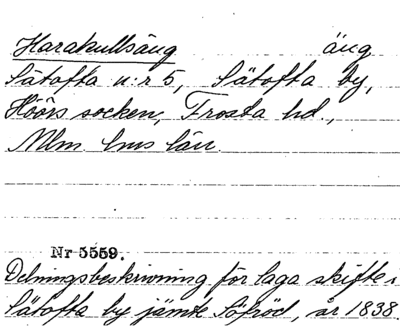 Harakullsäng äng
Sätofta n:r 5, Sätofta by,
Höörs socken, Frosta hd.,
Mlm. hus län.
Nr 5559.
Delningsbeskrivning för laga skifte i
Sätofta by jämte Söröd, år 1838.